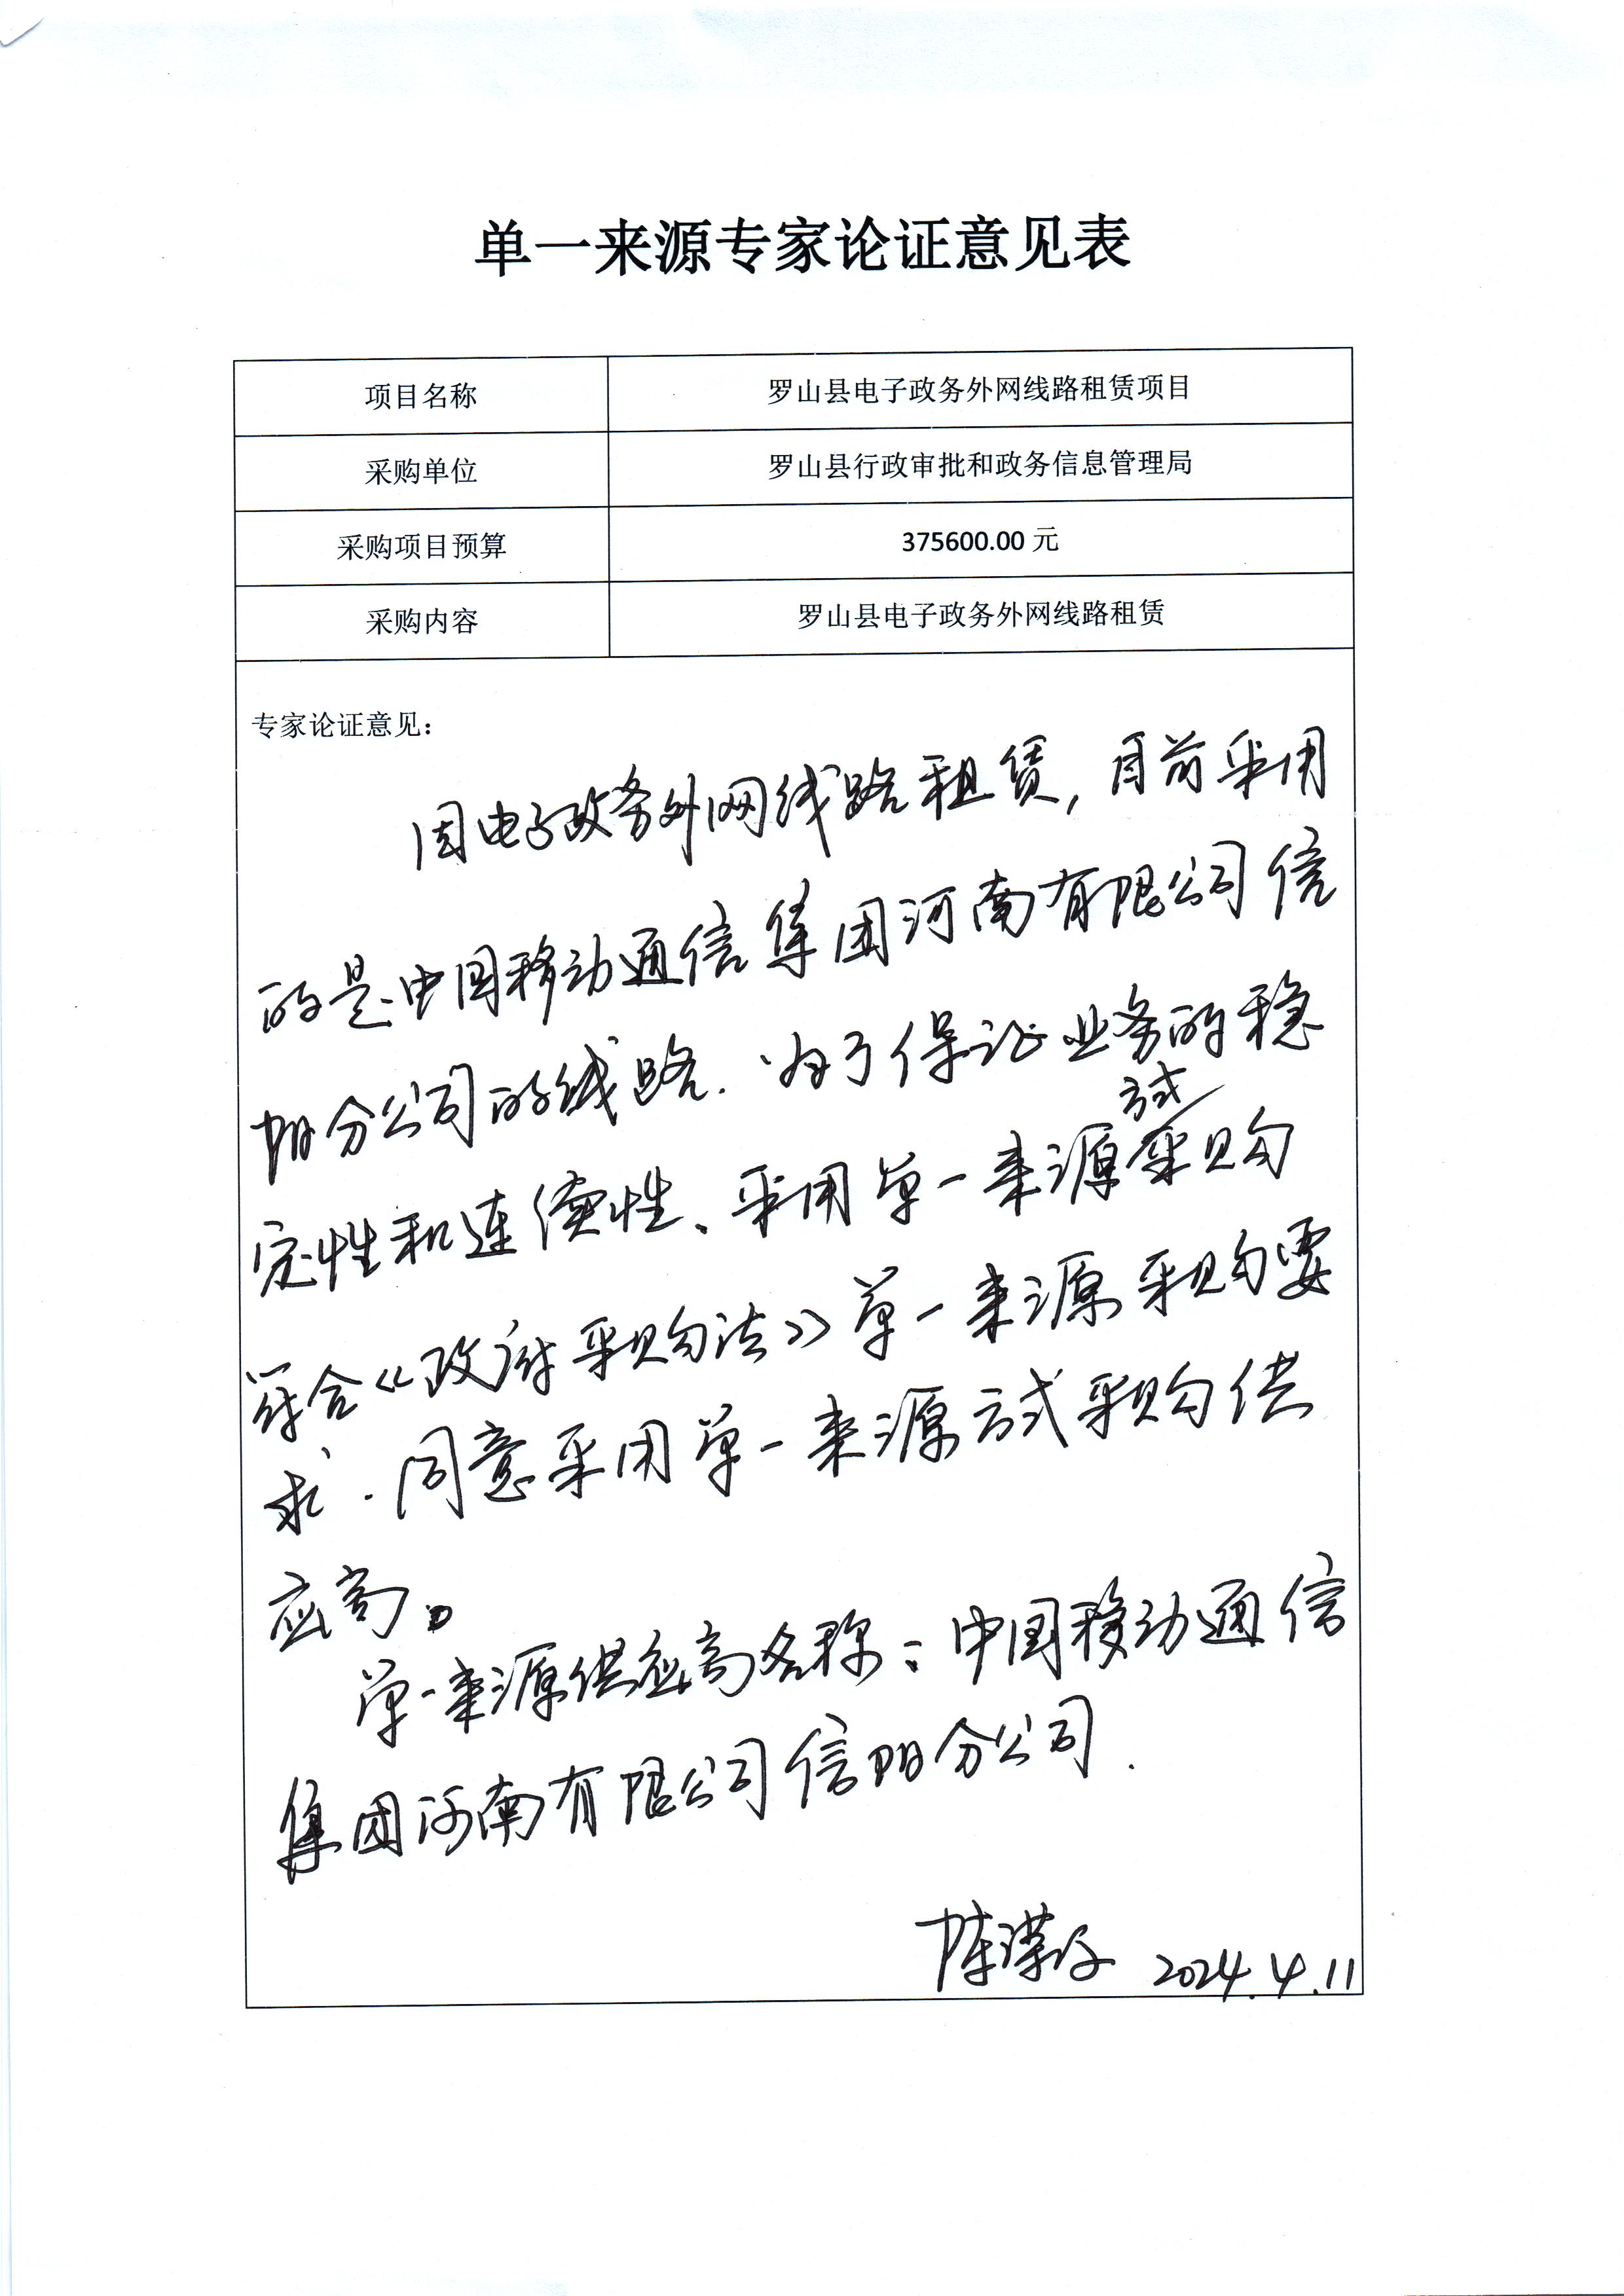 单一来源专家论证意见表
项目名称 罗山县电子政务外网线路租赁项目
采购单位 罗山县行政审批和政务信息管理局
采购项目预算 375600.00 元
采购内容 罗山县电子政务外网线路租赁
专家论证意见：
因电子政务外网线路租赁，目前采用
的是中国移动通信集团河南有限公司信
阳分公司的线路．为了保证业务的稳
方式
定性和连续性、采用单一来源采购
符合《政府采购法》单一来源采购要
求．同意采用单一来源方式采购供
应商。
单一来源供应商名称：中国移动通信
集团河南有限公司信阳分公司．
陈 2024.4.11